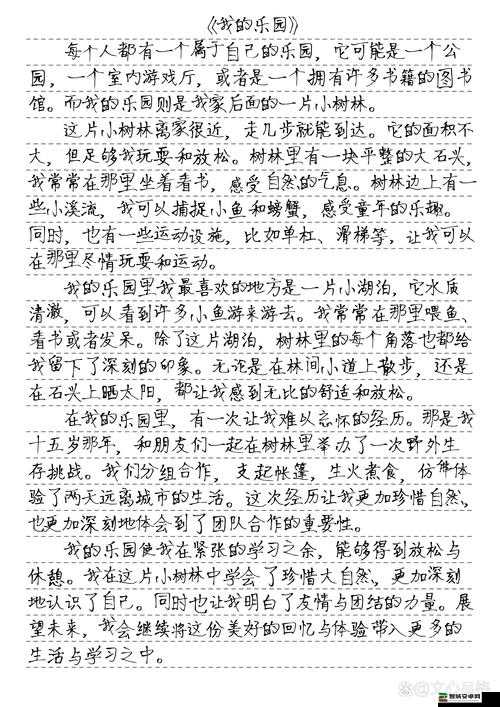 《我的乐园》
每个人都有一个属于自己的乐园，它可能是一个公
园，一个室内游戏厅，或者是一个拥有许多书籍的图书
馆。而我的乐园则是我家后面的一片小树林。
这片小树林离家很近，走几步就能到达。它的面积不
大，但足够我玩耍和放松。树林里有一块平整的大石头，
我常常在那里坐着看书，感受自然的气息。树林边上有一
些小溪流，我可以捕捉小鱼和螃蟹，感受童年的乐趣。
同时，也有一些运动设施，比如单杠、滑梯等，让我可以
在那里尽情玩耍和运动。
我的乐园里我最喜欢的地方是一片小湖泊，它水质
清澈，可以看到许多小鱼游来游去。我常常在那里喂鱼、
看书或者发呆。除了这片湖泊，树林里的每个角落也都给
我留下了深刻的印象。无论是在林间小道上散步，还是
在石头上晒太阳，都让我感到无比的舒适和放松。
在我的乐园里，有一次让我难以忘怀的经历。那是我
十五岁那年，和朋友们一起在树林里举办了一次野外生
存挑战。我们分组合作，支起帐篷，生火煮食，仿佛体
验了两天远离城市的生活。这次经历让我更加珍惜自然，
也更加深刻地体会到了团队合作的重要性。
我的乐园使我在紧张的学习之余，能够得到放松与
休憩。我在这片小树林中学会了珍惜大自然，更加深刻
地认识了自己。同时也让我明白了友情与团结的力量。展
望未来，我会继续将这份美好的回忆与体验带入更多的
生活与学习之中。